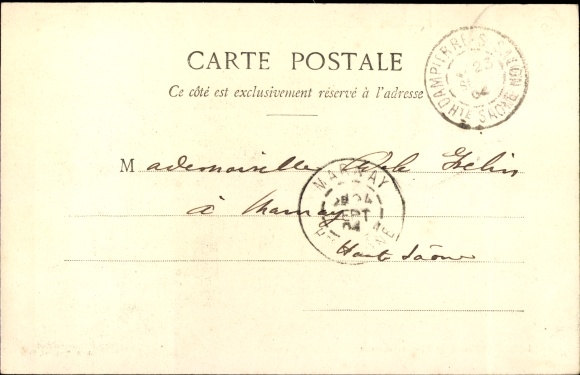 CARTE POSTALE
Ce côté est exclusivement réservé à l'adresse
DAMPIERRE-S-SALON
23
04
HTE SAONE
Mademoiselle
MARNAY
24
SEPT
04
à Marnay
Haute Saône